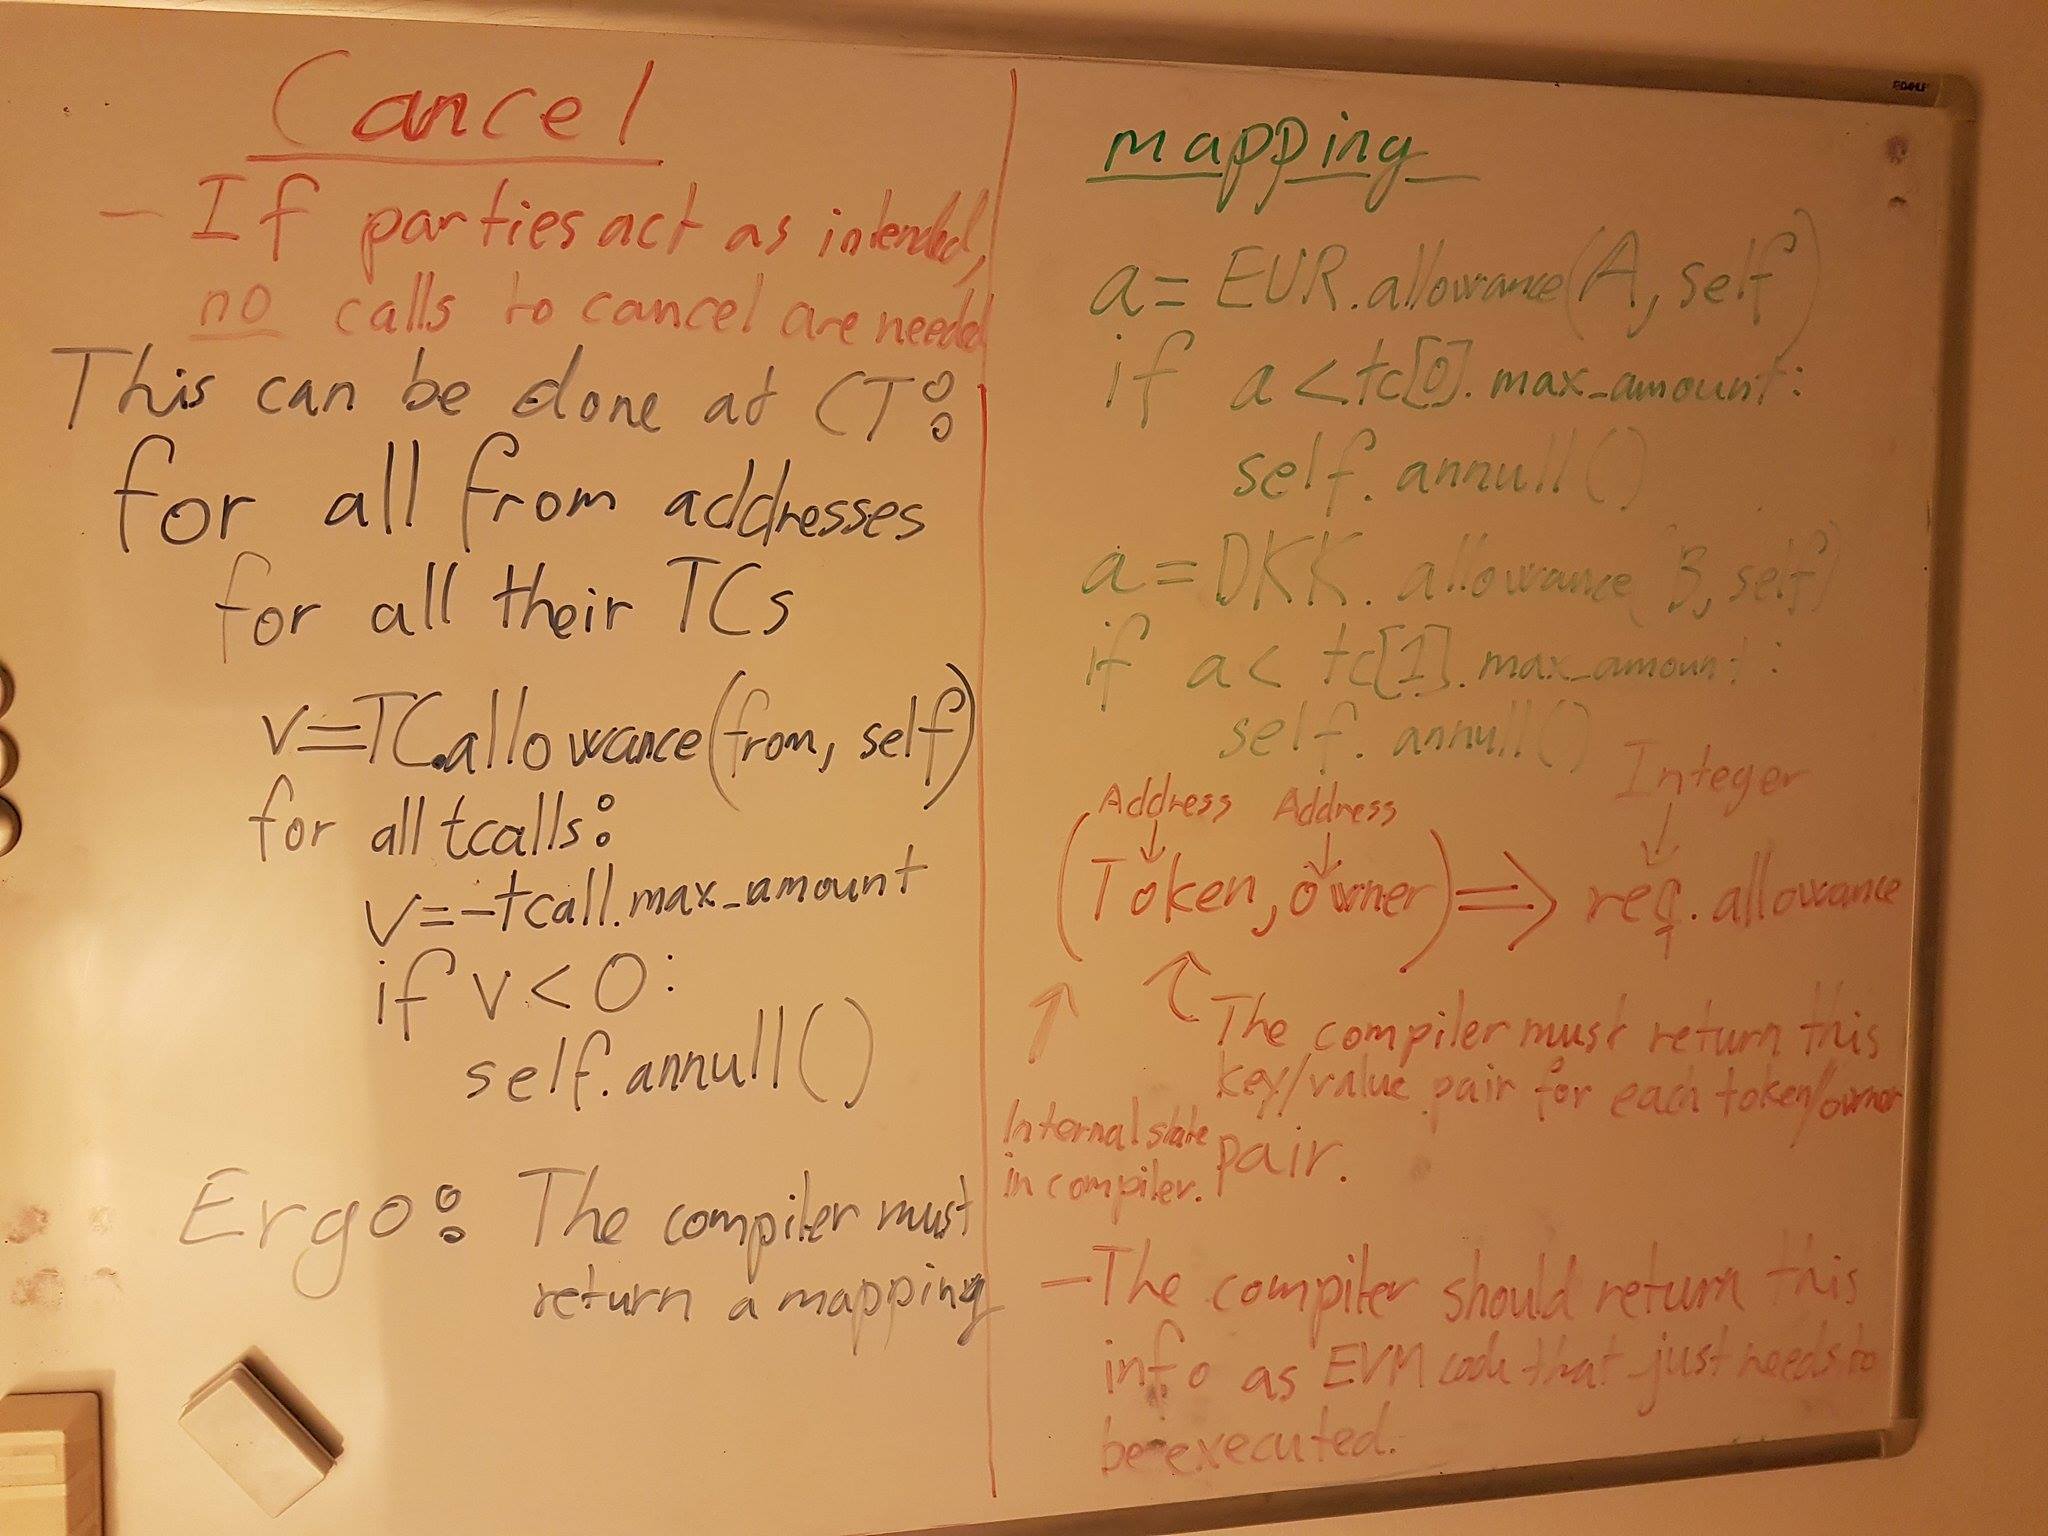 Cancel
- If parties act as intended,
no calls to cancel are needed
This can be done at CT:
for all from addresses
for all their TCs
v=TC.allowance(from, self)
for all tcalls:
v=-tcall.max_amount
if v<0:
self.annull()
Ergo: The compiler must
return a mapping
mapping
a=EUR.allowance(A, self)
if a<tc[0].max_amount:
self.annull()
a=DKK.allowance(B, self)
if a< tc[1].max_amount:
self.annull()
Integer
Address Address
(Token, owner) => req. allowance
The compiler must return this
key/value pair for each token/owner
pair.
Internal state
in compiler.
- The compiler should return this
info as EVM code that just needs to
be executed.